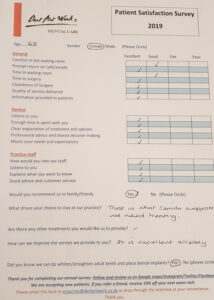 DENTAL CARE
Patient Satisfaction Survey
2019
Age
Gender Female Male (Please Circle)
General Excellent Good Fair Poor
Comfort in the waiting room
Prompt return on calls/emails
Time in waiting room
Time in surgery
Cleanliness of Surgery
Quality of service delivered
Information provided to patients
Dentist
Listens to you
Enough time is spent with you
Clear explanation of treatment and options
Professional advice and shared decision making
Meets your needs and expectations
Practice staff
How would you rate our staff
Listens to you
Explains what you want to know
Good advice and customer service
Would you recommend us to family/friends Yes No (Please Circle)
What drives your choice to stay at our practice? Trust in what Camilla suggests
we need treating.
Are there any other treatments you would like us to provide?
How can we improve the service we provide to you? It is excellent already
Did you know we can do whiten/straighten adult teeth and place dental implants? Yes No (please circle)
Thank you for completing our annual survey. Follow and review us on Google maps/Instagram/Twitter/Facebook
We are accepting new patients. If you refer a friend, receive 10% off your next exam visit.
Please email this back to or drop through the letterbox at your convenience.
Thank you.